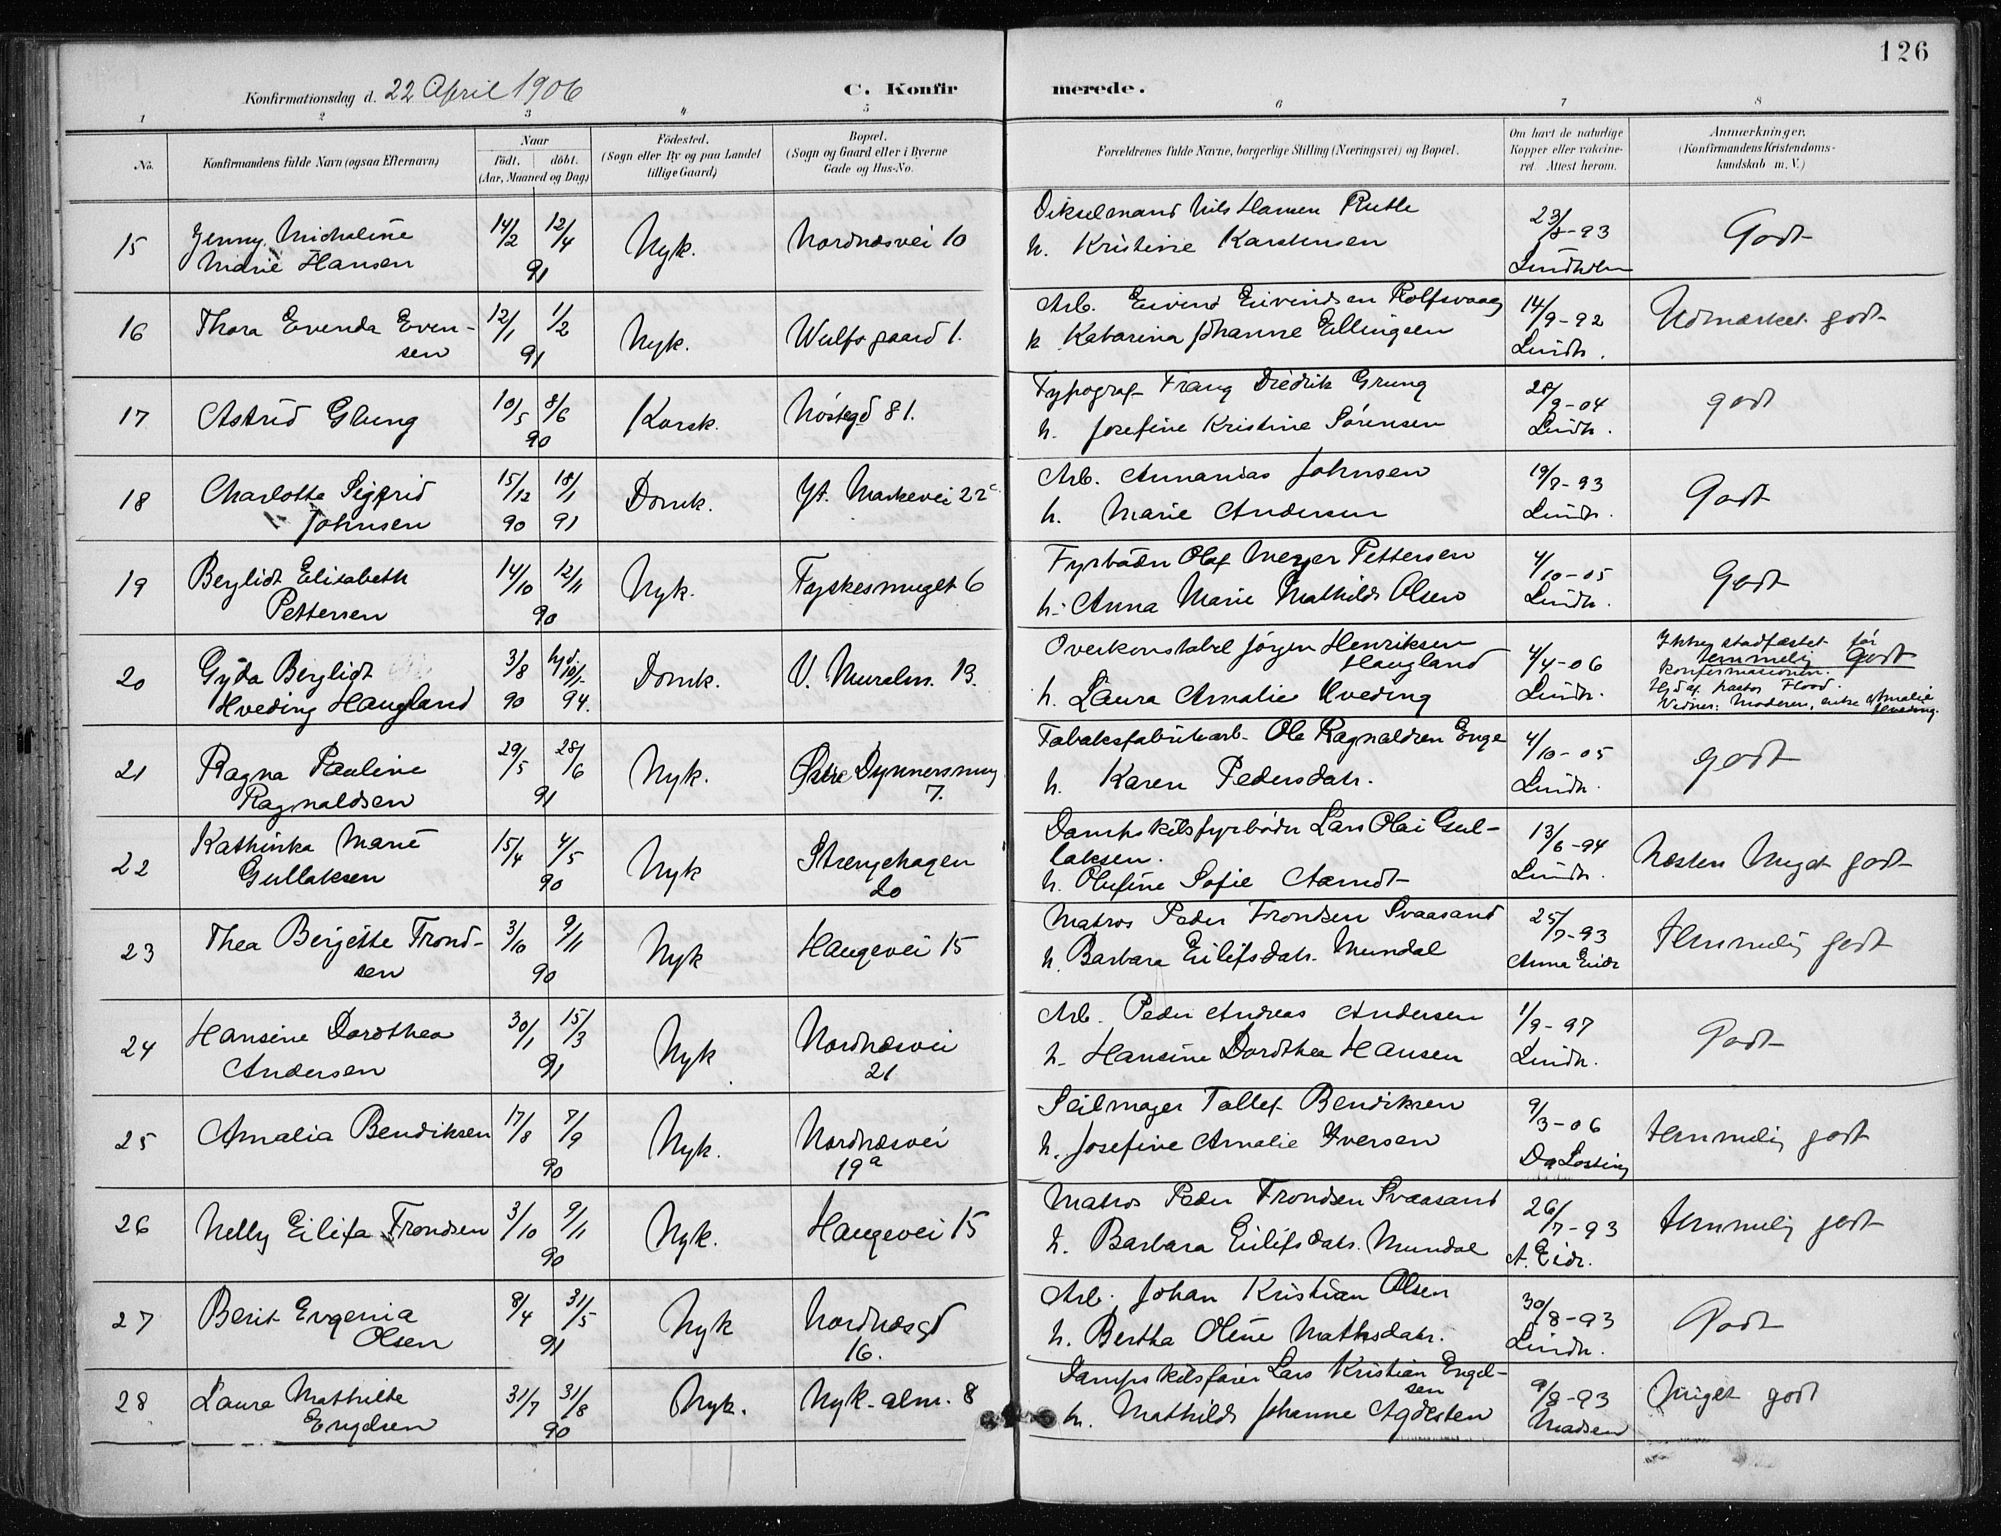 126
Konfirmationsdag d. 22 April 1906
C. Konfirmerede.
1 2 3 4 5 6 7 8
No.
Konfirmandens fulde Navn (ogsaa Efternavn)
Naar
födt. döbt.
(Aar, Maaned og Dag)
Födested.
(Sogn eller By og paa Landet
tillige Gaard)
Bopæl.
(Sogn og Gaard eller i Byerne
Gade og Hus-No.
Forældrenes fulde Navne, borgerlige Stilling (Næringsvei) og Bopæl.
Om havt de naturlige
Kopper eller vakcine-
ret. Attest herom.
Anmærkninger.
(Konfirmandens Kristendoms-
kundskab m. V.)
15 Jenny Micholine 14/2 12/4 Nyk. Nordnæsvei 10 Nils Hansen 23/8-93 Godt
Marie Hansen 91 h. Kristine Karstensen Lindholm
16 Thora Evenda Even- 12/1 1/2 Nyk. Wulfsgaard 1. Arb. Eivind Eivindsen Rolfsvaag 14/9-92 Udmærket godt
sen 91 h. Katarina Johanne Ellingsen Lindh.
17 Astrid Grung 10/5 8/6 Korsk. Nøstegd 81. Typograf Franz Diedrik Grung 28/9-04 godt
90 h. Josefine Kristine Sørensen Lindh.
18 Charlotte Sigfrid 15/12 18/1 Domk. Yt. Markevei 22c Arb. Annanias Johnsen 19/9-93 Godt
Johnsen 90 91 h. Marie Andersen Lindh.
19 Bergliot Elisabeth 14/10 12/11 Nyk. Fyrbøder Olaf Meyer Pettersen 4/10-05 Godt
Pettersen 90 h. Anna Marie Mathilde Olsen Lindh.
20 Gyda Bergliot 3/8 hjd. 10/1 Domk. V. Muralm. 13. Overkonstabel Jørgen Henriksen Haugland 4/4-06 Ikke stadfæstet før
temmelig godt
konfirmationen.
Hjd af pastor Flood.
Hveding Haugland 90 94. h. Laura Amalie Hveding Lindh. Vidner: Moderen, enke Amalie Hveding.
21 Ragna Pauline 29/5 28/6 Nyk. Østre Dynnersmug Tobaksfabrikarb. Ole Ragnaldsen Enge 4/10-05 godt
Ragnaldsen 91 7. h. Karen Pedersdatr. Lindh.
22 Kathinka Marie 15/4 4/5 Nyk Strangehagen Dampskibsfyrbøder Lars Olai Gul- 13/6-94 Næsten Meget godt
laksen.
Gullaksen 90 20 h. Olufine Sofie Lindh.
23 Thea Bergitte Trond- 3/10 9/11 Nyk Haugevei 15 Matros Peder Trondsen Svaasand 25/7-93 temmelig godt
sen 90 h. Barbara Eilifsdatr. Mundal Anna Eide
24 Hansine Dorothea 30/1 15/3 Nyk Nordnæsvei Arb. Peder Andreas Andersen 1/9-97 Godt
Andersen 91 21 h. Hansine Dorothea Hansen Lindh.
25 Amalia Bendiksen 17/8 7/9 Nyk. Nordnæsvei Seilmager Tollef Bendiksen 9/3-06 temmelig godt
90 19a h. Josefine Amalie Iversen Dr Losting
26 Nelly Eilifa Trondsen 3/10 9/11 Nyk. Haugevei 15 Matros Peder Trondsen Svaasand 26/7-93 temmelig godt
90 h. Barbara Eilifsdatr. Mundal A. Eide.
27 Berit Evgenia 8/4 31/5 Nyk Nordnæsgd Arb. Johan Kristian Olsen 30/8-93 Godt
Olsen 91 16. h. Bertha Oline Mathsdatr. Lindh.
28 Laura Mathilde 31/7 31/8 Nyk. Nyk-alm. 8 Dampskibsfører Lars Kristian Engel- 9/9-93 Meget godt
sen
Engelsen 90 h. Mathilde Johanne Agdesten Madsen